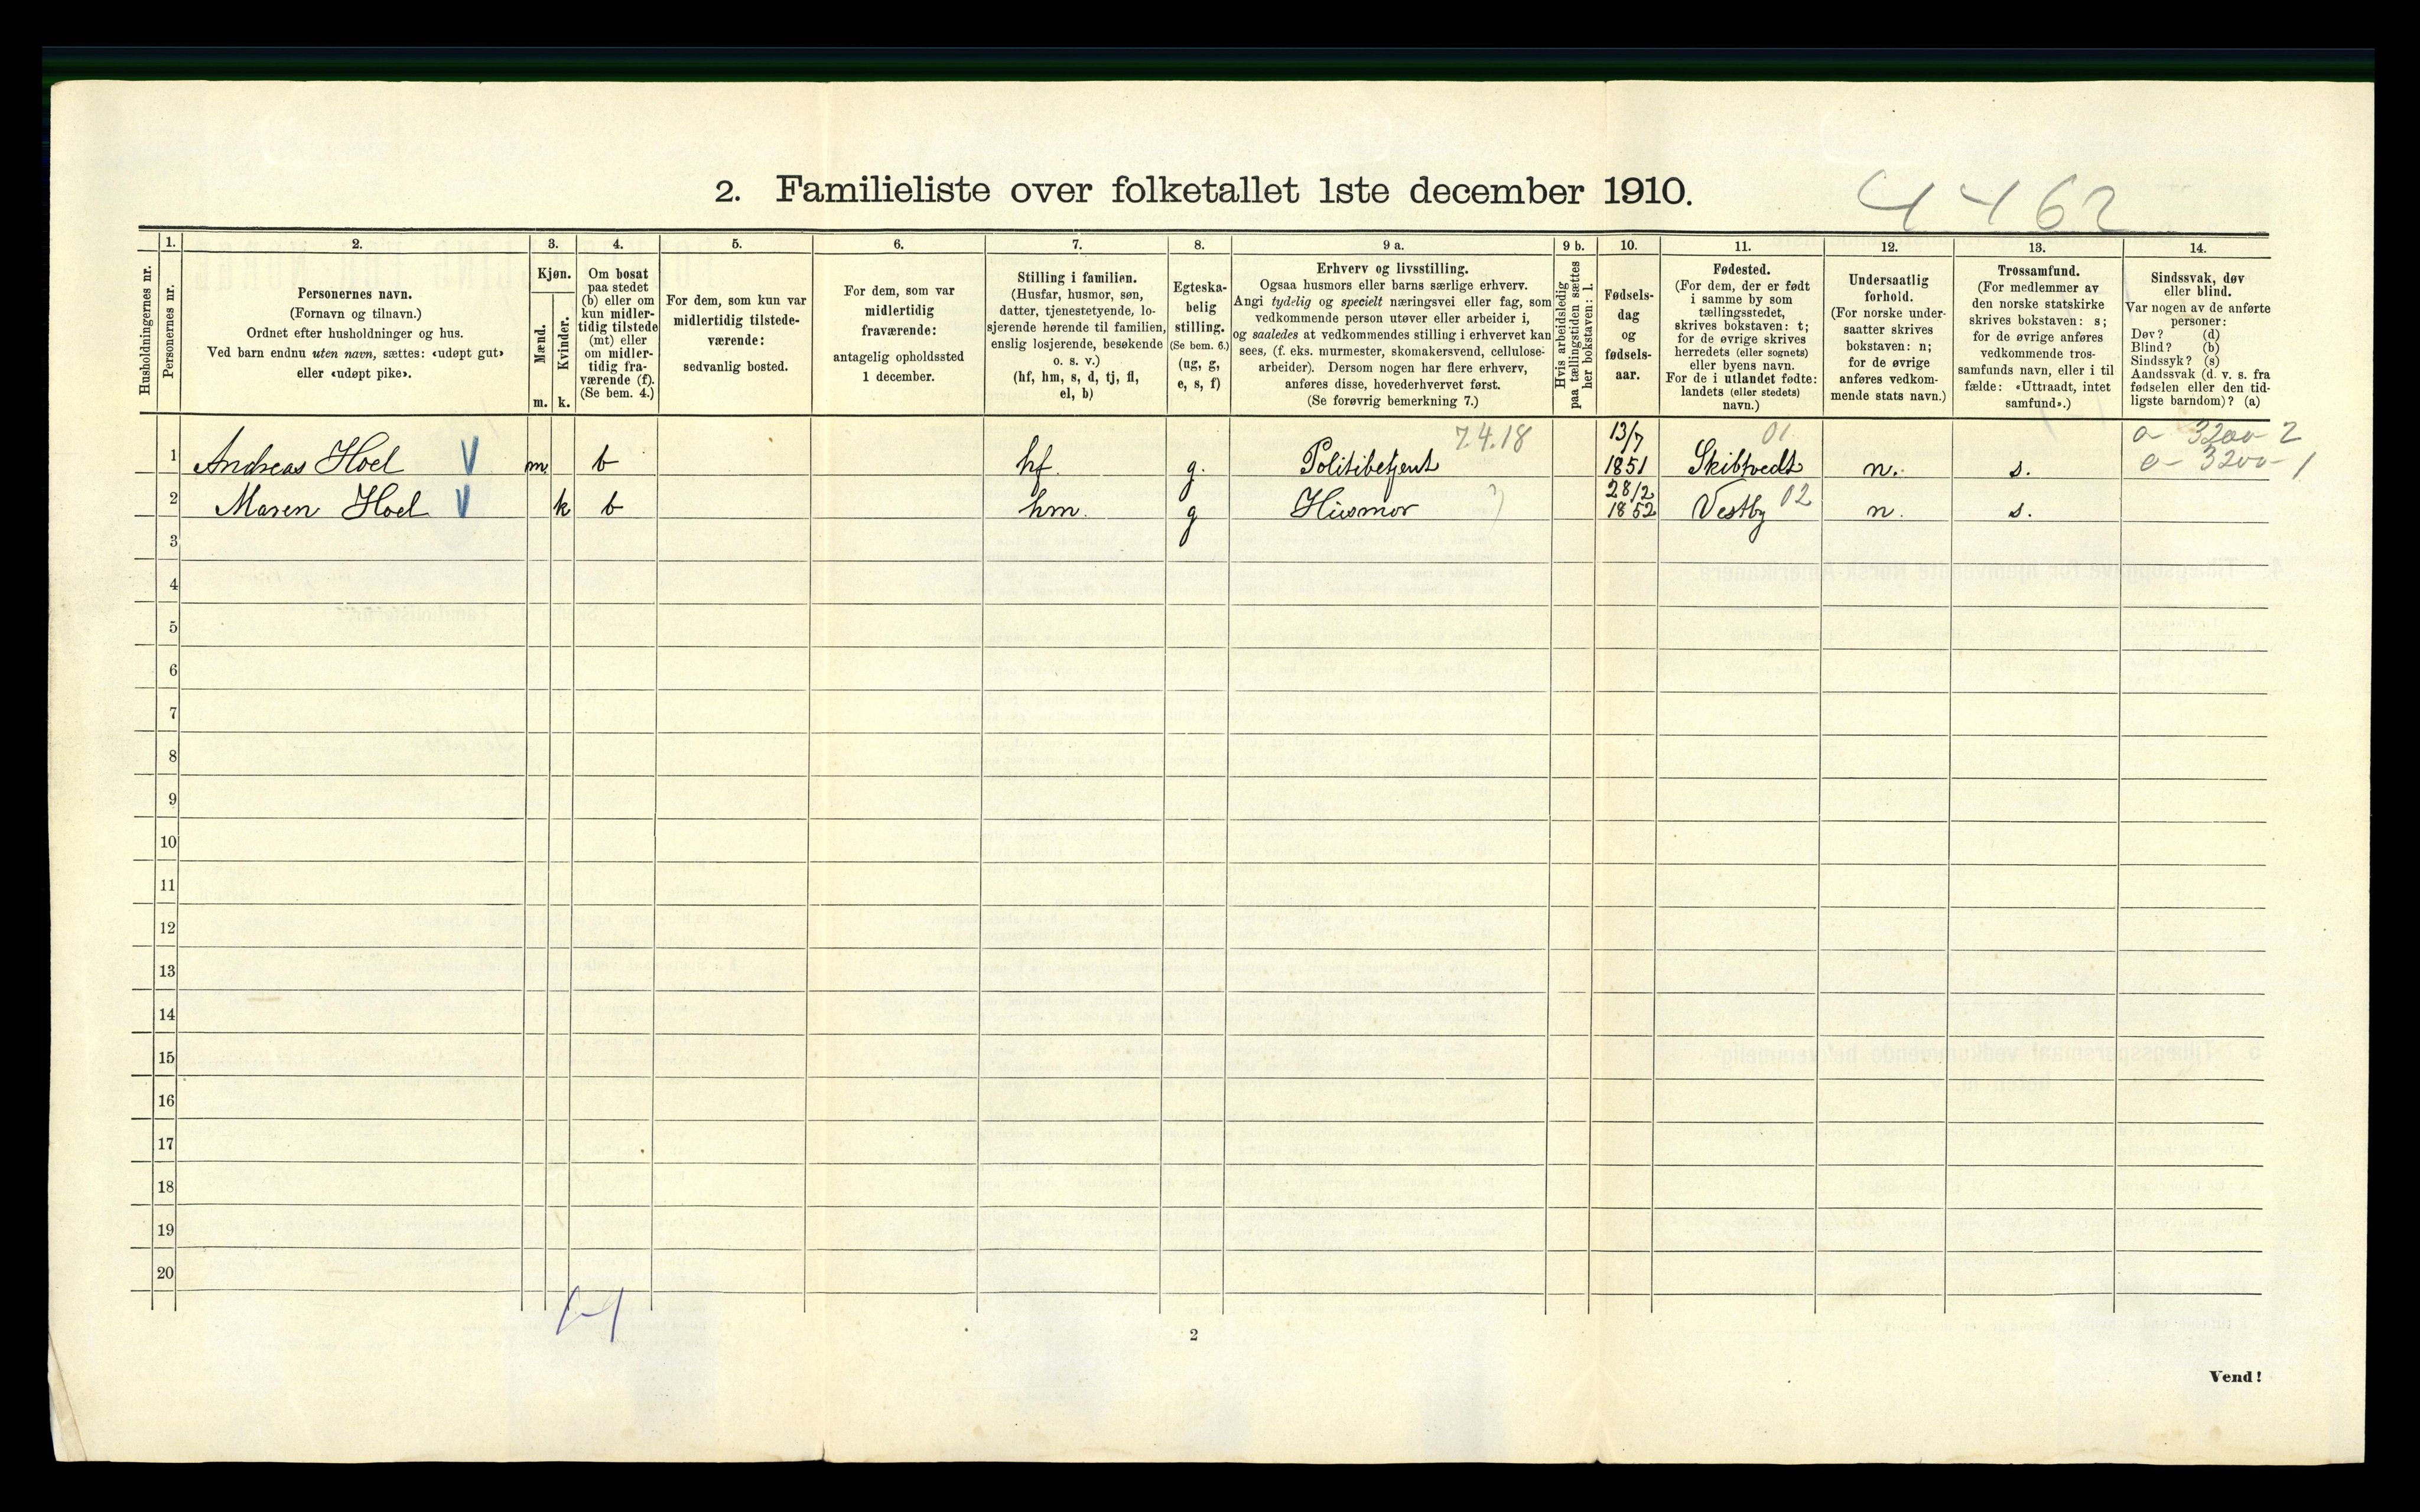 2. Familieliste over folketallet 1ste december 1910.
4462
Husholdningernes nr.
1.
Personernes nr.
2.
Personernes navn.
(Fornavn og tilnavn.)
Ordnet efter husholdninger og hus.
Ved barn endnu uten navn, sættes: «udøpt gut»
eller «udøpt pike».
3.
Kjøn.
Mænd.
m.
Kvinder.
k.
4.
Om bosat
paa stedet
(b) eller om
kun midler-
tidig tilstede
(mt) eller
om midler-
tidig fra-
værende (f).
(Se bem. 4.)
5.
For dem, som kun var
midlertidig tilstede-
værende:
sedvanlig bosted.
6.
For dem, som var
midlertidig
fraværende:
antagelig opholdssted
1 december.
7.
Stilling i familien.
(Husfar, husmor, søn,
datter, tjenestetyende, lo-
sjerende hørende til familien,
enslig losjerende, besøkende
o. s. v.)
(hf, hm, s, d, tj, fl,
el, b)
8.
Egteska-
belig
stilling.
(Se bem. 6.)
(ug, g,
e, s, f)
9 a.
Erhverv og livsstilling.
Ogsaa husmors eller barns særlige erhverv.
Angi tydelig og specielt næringsvei eller fag, som
vedkommende person utøver eller arbeider i,
og saaledes at vedkommendes stilling i erhvervet kan
sees, (f. eks. murmester, skomakersvend, cellulose-
arbeider). Dersom nogen har flere erhverv,
anføres disse, hovederhvervet først.
(Se forøvrig bemerkning 7.)
9 b.
Hvis arbeidsledig
paa tællingstiden sættes
her bokstaven: l.
10.
Fødsels-
dag
og
fødsels-
aar.
11.
Fødested.
(For dem, der er født
i samme by som
tællingsstedet,
skrives bokstaven: t;
for de øvrige skrives
herredets (eller sognets)
eller byens navn.
For de i utlandet fødte:
landets (eller stedets)
navn.)
12.
Undersaatlig
forhold.
(For norske under-
saatter skrives
bokstaven: n;
for de øvrige
anføres vedkom-
mende stats navn.)
13.
Trossamfund.
(For medlemmer av
den norske statskirke
skrives bokstaven: s;
for de øvrige anføres
vedkommende tros-
samfunds navn, eller i til
fælde: «Uttraadt, intet
samfund».)
14.
Sindssvak, døv
eller blind.
Var nogen av de anførte
personer:
Døv? (d)
Blind? (b)
Sindssyk? (s)
Aandssvak (d. v. s. fra
fødselen eller den tid-
ligste barndom)? (a)
1 Andreas Hoel V m. b hf. g. Politibetjent 7.4.18 13/7 1851 Skibtvedt 01 n. s. 0 - 3200 - 2
0 - 3200 - 1
2 Maren Hoel V k b hm. g Husmor 28/2 1852 Vestby 02 n. s.
3
4
5
6
7
8
9
10
11
12
13
14
15
16
17
18
19
20
1-1
2
Vend!